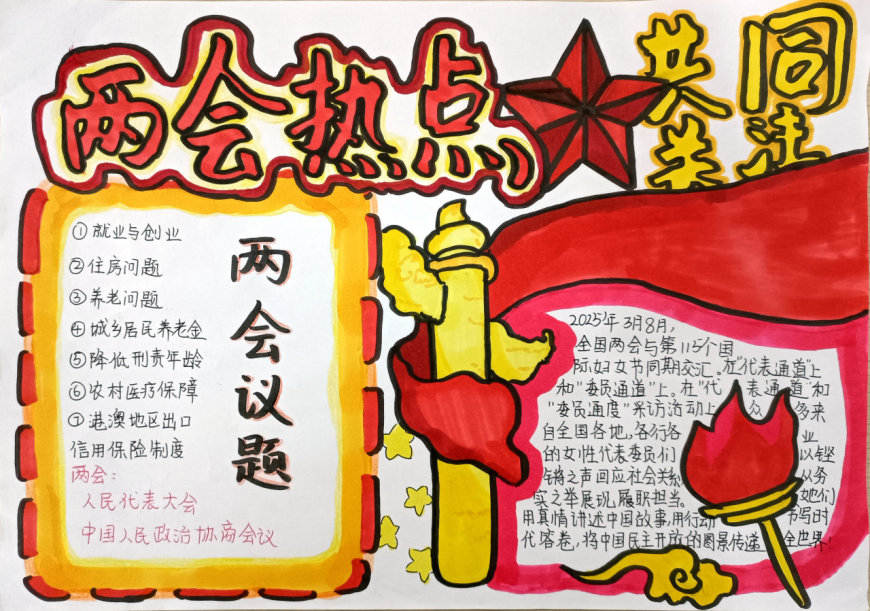 两会热点
共同
关注
两会议题
①就业与创业
②住房问题
③养老问题
④城乡居民养老金
⑤降低刑责年龄
⑥农村医疗保障
⑦港澳地区出口
信用保险制度
两会:
人民代表大会
中国人民政治协商会议
2025年3月8月,
全国两会与第115个国
际妇女节同期交汇。在"代表通道"上
和"委员通道"上。在"代表通道"和
"委员通度"采访活动上众多来
自全国各地,各行各业
的女性代表委员们以铿
锵之声回应社会关
实之举展现履职担当。她们
用真情讲述中国故事,用行动书写时
代答卷,将中国民主开放的图景传递全世界!